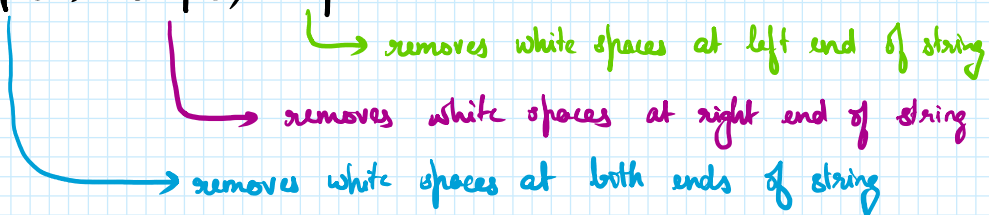 removes white spaces at left end of string
removes white spaces at right end of string
removes white spaces at both ends of string